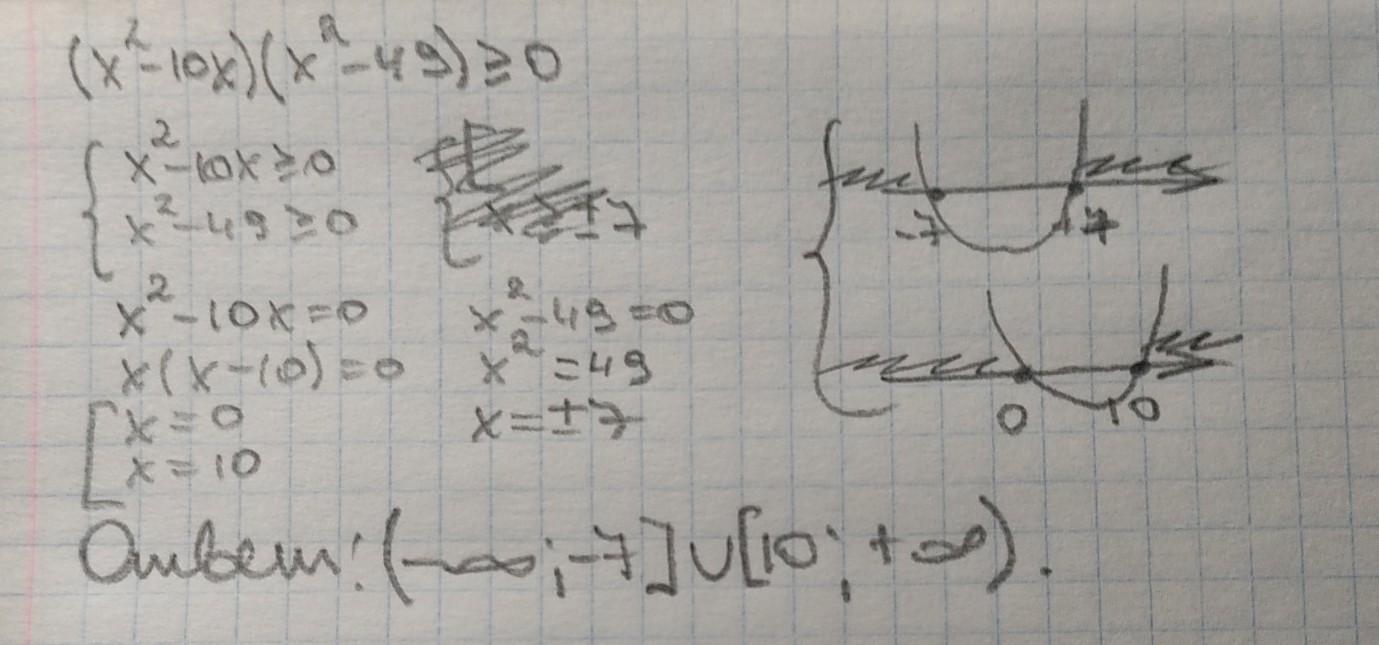 (x²-10x)(x²-49)≥0
{ x²-10x≥0
x²-49≥0
x²-10x=0
x(x-10)=0
[ x=0
x=10
x²-49=0
x²=49
x=±7
-7 +7
0 10
Ответ: (-∞;-7]∪[10;+∞).